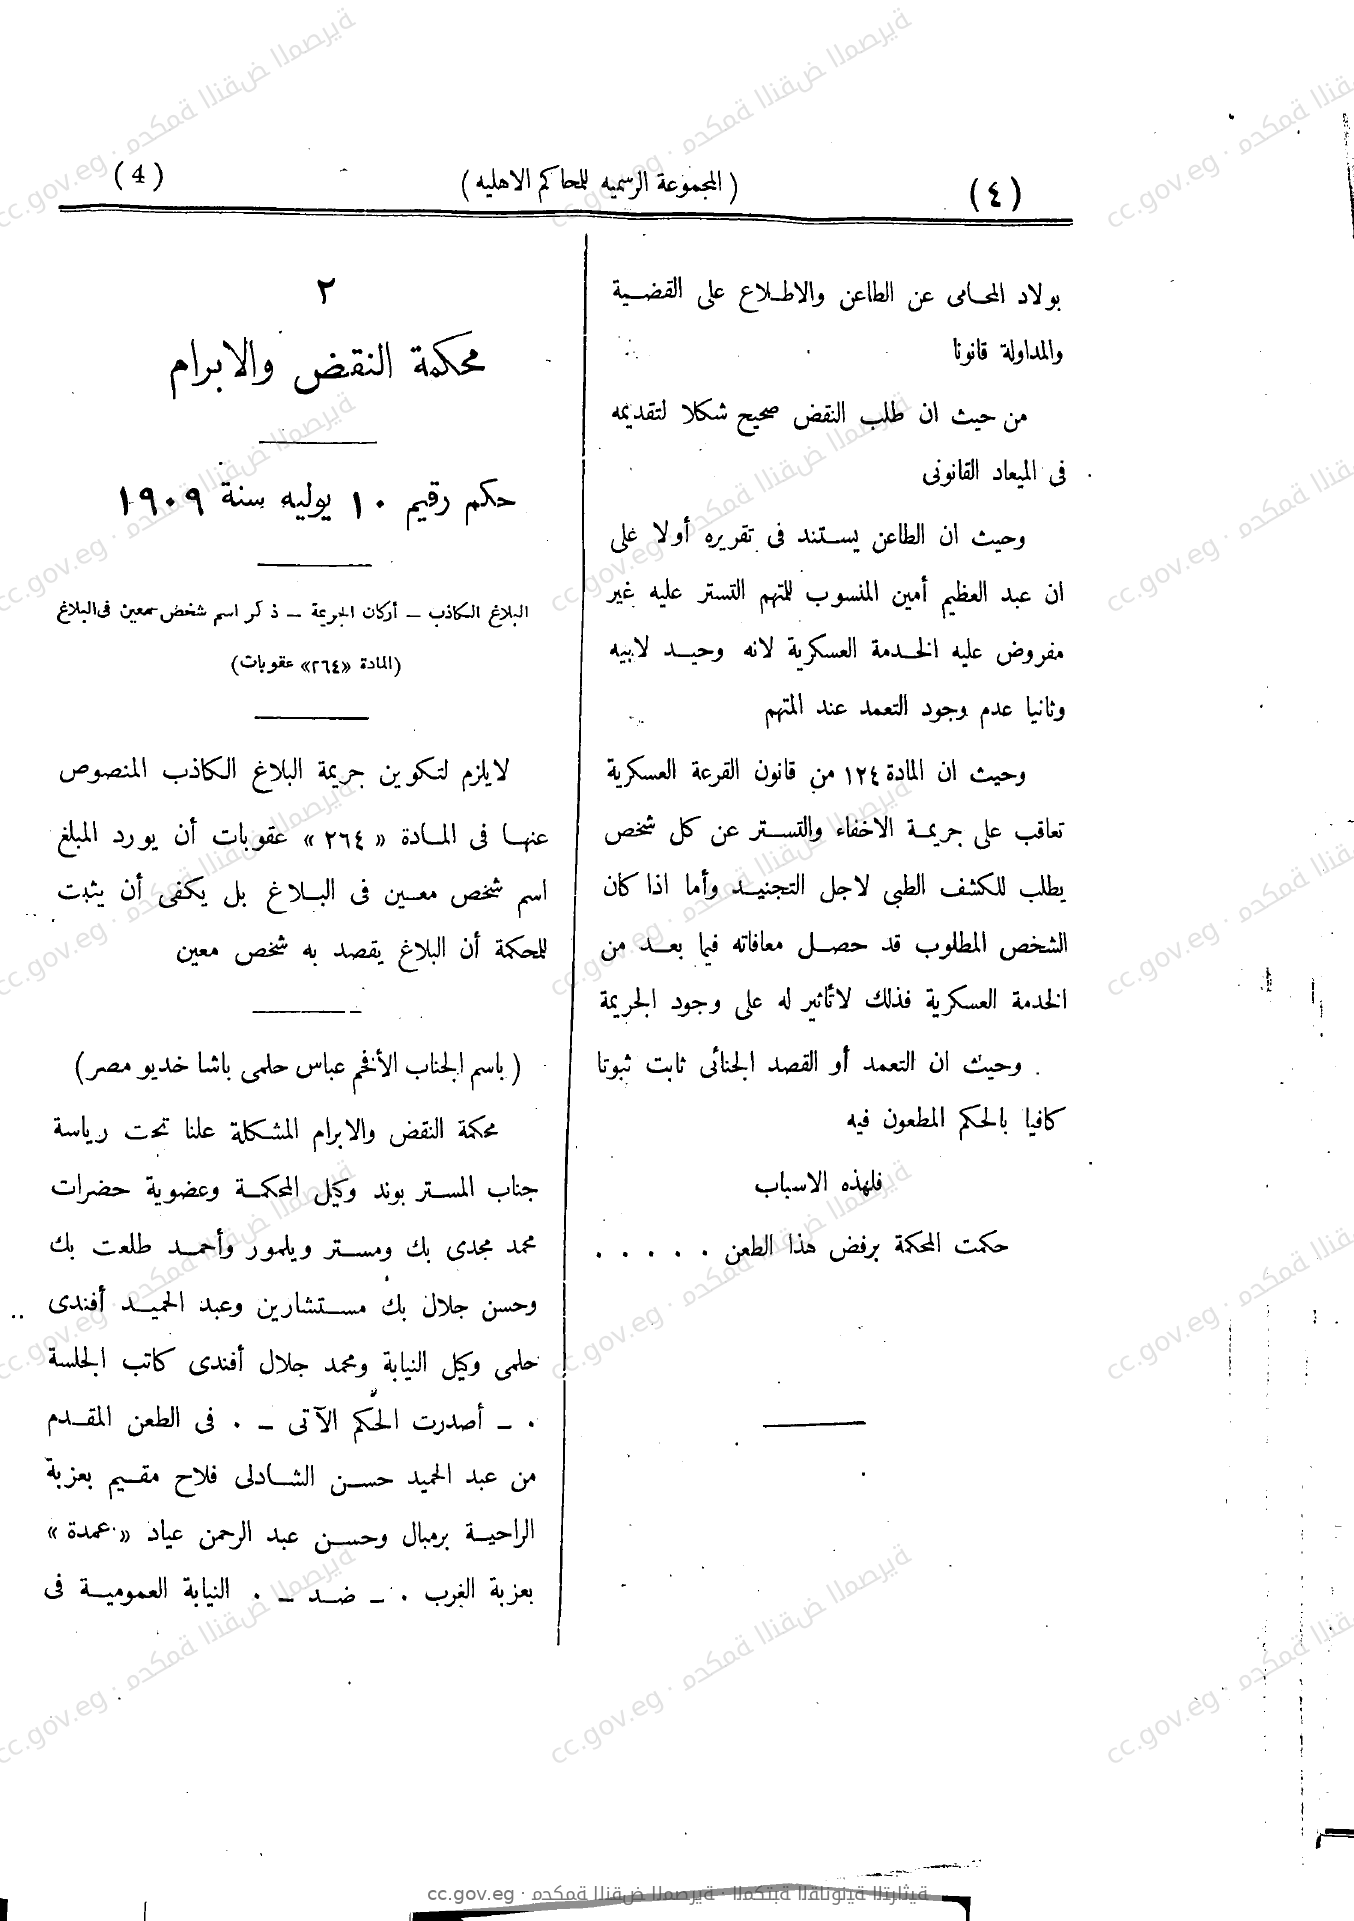 (٤)
(المجموعة الرسميه للمحاكم الاهليه)
(4)
بولاد المحامى عن الطاعن والاطلاع على القضية
والمداولة قانونا
من حيث ان طلب النقض صحيح شكلا لتقديمه
فى الميعاد القانونى
وحيث ان الطاعن يستند فى تقريره أولا على
ان عبد العظيم أمين المنسوب للمتهم التستر عليه غير
مفروض عليه الخدمة العسكرية لانه وحيد لابيه
وثانيا عدم وجود التعمد عند المتهم
وحيث ان المادة ١٢٤ من قانون القرعة العسكرية
تعاقب على جريمة الاخفاء والتستر عن كل شخص
يطلب للكشف الطبى لاجل التجنيد وأما اذا كان
الشخص المطلوب قد حصل معافاته فيما بعد من
الخدمة العسكرية فذلك لاتأثير له على وجود الجريمة
وحيث ان التعمد أو القصد الجنائى ثابت ثبوتا
كافيا بالحكم المطعون فيه
فلهذه الاسباب
حكمت المحكمة برفض هذا الطعن . . . . .
٢
محكمة النقض والابرام
حكم رقيم ١٠ يوليه سنة ١٩٠٩
البلاغ الكاذب – أركان الجريمة – ذكر اسم شخص معين فى البلاغ
(المادة «٢٦٤» عقوبات)
لايلزم لتكوين جريمة البلاغ الكاذب المنصوص
عنها فى المادة «٢٦٤» عقوبات أن يورد المبلغ
اسم شخص معين فى البلاغ بل يكفى أن يثبت
للمحكمة أن البلاغ يقصد به شخص معين
(باسم الجناب الأفخم عباس حلمى باشا خديو مصر)
محكمة النقض والابرام المشكلة علنا تحت رياسة
جناب المستر بوند وكيل المحكمة وعضوية حضرات
محمد مجدى بك ومستر ويلمور وأحمد طلعت بك
وحسن جلال بك مستشارين وعبد الحميد أفندى
حلمى وكيل النيابة ومحمد جلال أفندى كاتب الجلسة
. – أصدرت الحكم الآتى – . فى الطعن المقدم
من عبد الحميد حسن الشادلى فلاح مقيم بعزبة
الراحية برمبال وحسن عبد الرحمن عياد «عمدة»
بعزبة الغرب . – ضد – . النيابة العمومية فى
cc.gov.eg · محكمة النقض المصرية · المكتبة القانونية التراثية